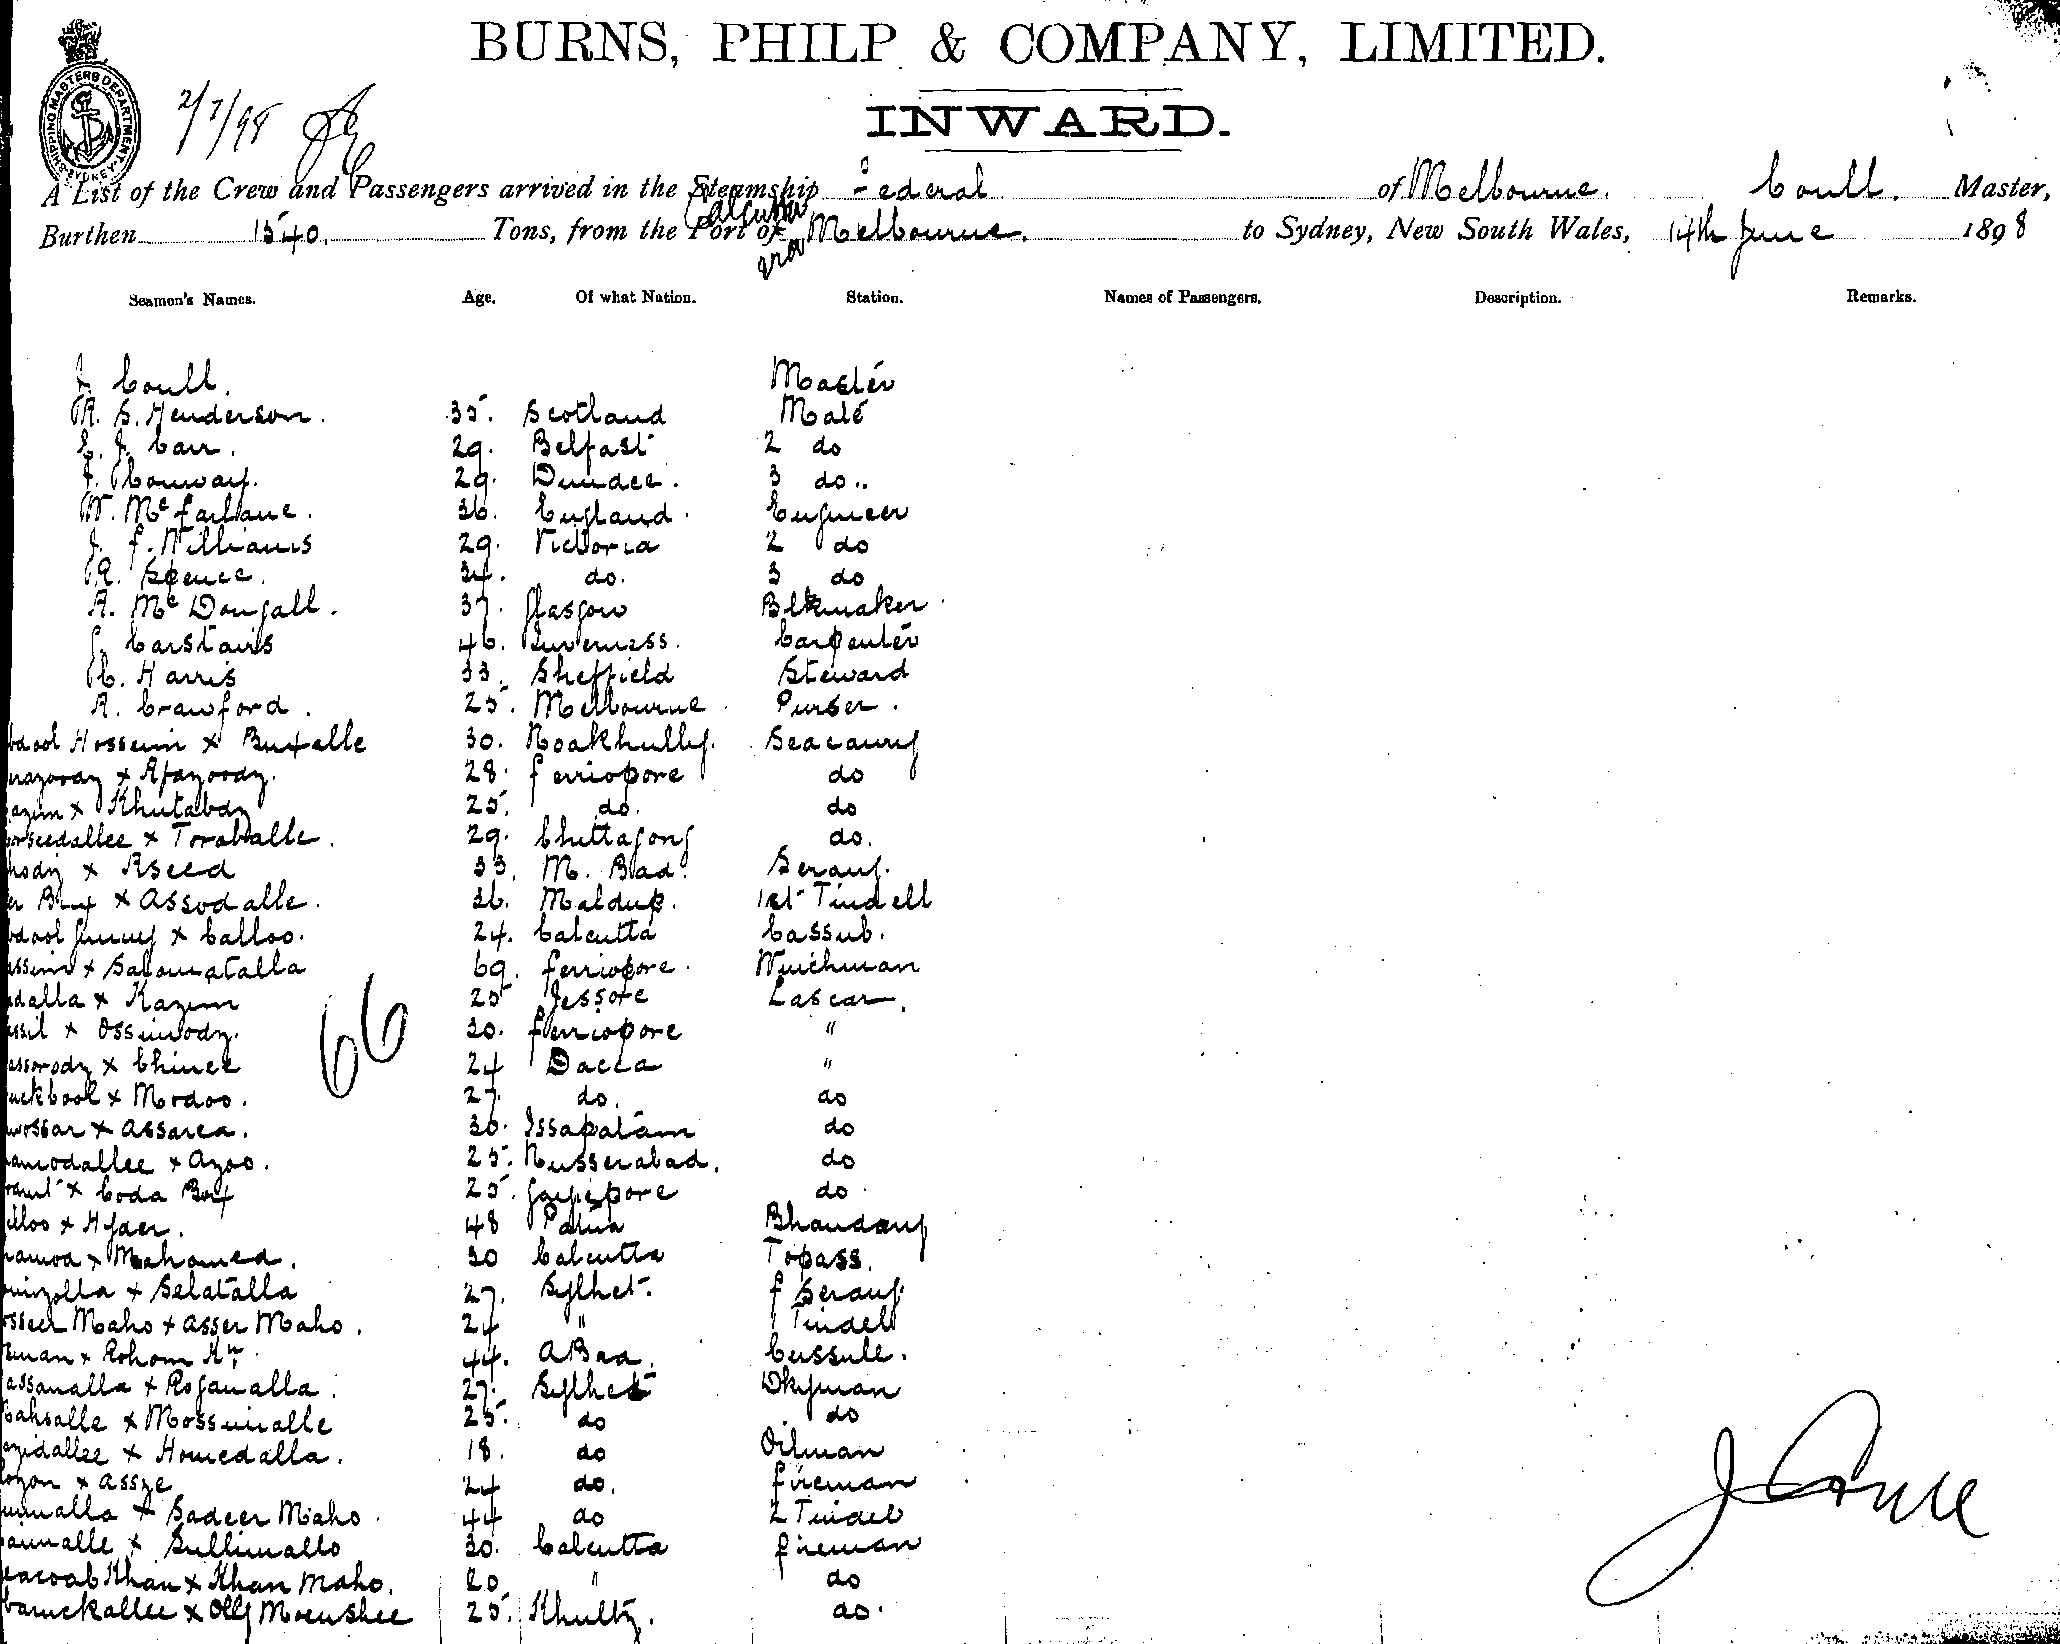 BURNS, PHILP & COMPANY, LIMITED.
INWARD.
SHIPPING MASTERS DEPARTMENT SYDNEY
2/7/98
A List of the Crew and Passengers arrived in the Steamship Federal of Melbourne. Coull. Master,
Burthen 1540. Tons, from the Port of Calcutta via Melbourne. to Sydney, New South Wales, 14th June 1898
Seamen's Names. Age. Of what Nation. Station. Names of Passengers. Description. Remarks.
J. Coull. Master
R. S. Henderson. 35. Scotland Mate
E. J. Carr. 29. Belfast 2 do
J. Conway. 29. Dundee. 3 do..
W. McFarlane. 36. England. Engineer
J. F. Williams 29. Victoria 2 do
R. Spence. 34. do. 3 do
A. McDougall. 37. Glasgow Blkmaker
J. Carstairs 46. Inverness. Carpenter
C. Harris 33. Sheffield Steward
A. Crawford. 25. Melbourne Purser.
Hossein x Buxalle 30. Noakhully. Seacunny
x Afazoody. 28. Ferriopore do
x Khutabdy 25. do. do
x Torabballe. 29. Chittagong do.
x Aseed 33. M. Bad. Serang.
Bux x Assodalle. 36. Maldup. 1st Tindell
x Calloo. 24. Calcutta Cassub.
x Salomatalla 69. Ferriopore. Winchman
x Kazim 25 Jessore Lascar.
x Ossimody. 30. Ferriopore "
x Chinee 24 Dacca "
x Modoo. 27. do. do
x Assarea. 30. Issapatam do
x Azoo. 25. Nusserabad. do
x Coda Bux 25. do
x Hyder. 48 Patna Bhandary
x Mahomed. 30 Calcutta Topass.
x Selatalla 27. Sylhet. F Serang.
Maho x Asser Maho. 24 " Tindell
x Rohom 44. ABad. Cussule.
x Rofanalla. 27. Sylhet Dkyman
x Mossimalle 25. do do
x Homedalla. 18. do Oilman
x Assze 24 do. Fireman
x Sadeer Maho. 44 do 2 Tindel
x Sullimallo 30. Calcutta Fireman
Khan x Khan Maho. 20 " do
x Olly Moenshee 25. Khulty. do.
66